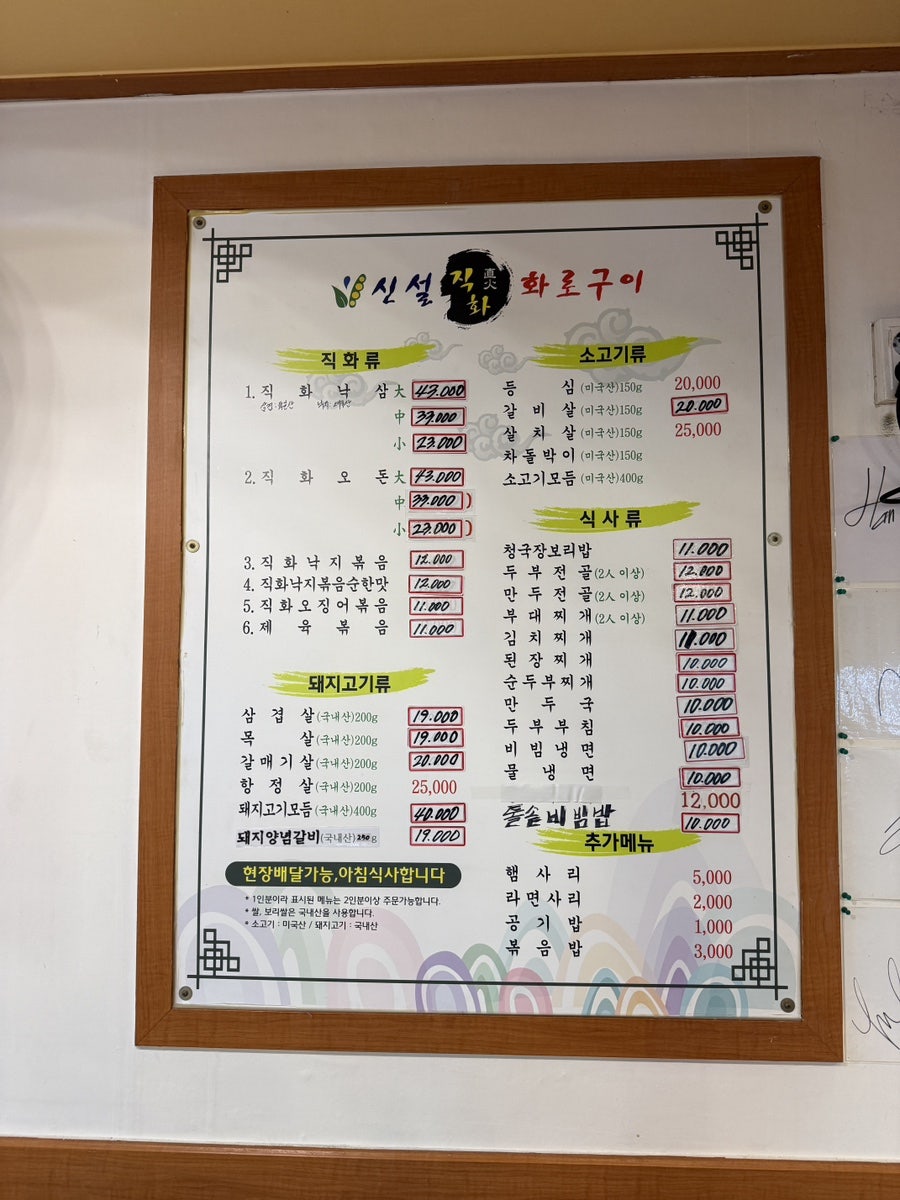 신설 직화 直火 화로구이
직화류
1. 직화낙삼 大 43.000
中 39.000
小 23.000
2. 직화오돈 大 43.000
中 39.000
小 23.000
3. 직화낙지볶음 12.000
4. 직화낙지볶음순한맛 12.000
5. 직화오징어볶음 11.000
6. 제육볶음 11.000
돼지고기류
삼겹살(국내산)200g 19.000
목살(국내산)200g 19.000
갈매기살(국내산)200g 20.000
항정살(국내산)200g 25,000
돼지고기모듬(국내산)400g 40.000
돼지양념갈비(국내산)250g 19.000
현장배달가능,아침식사합니다
* 1인분이라 표시된 메뉴는 2인분이상 주문가능합니다.
* 쌀, 보리쌀은 국내산을 사용합니다.
* 소고기 : 미국산 / 돼지고기 : 국내산
소고기류
등심(미국산)150g 20,000
갈비살(미국산)150g 20.000
살치살(미국산)150g 25,000
차돌박이(미국산)150g
소고기모듬(미국산)400g
식사류
청국장보리밥 11.000
두부전골(2人 이상) 12.000
만두전골(2人 이상) 12.000
부대찌개(2人 이상) 11.000
김치찌개 11.000
된장찌개 10.000
순두부찌개 10.000
만두국 10.000
두부부침 10.000
비빔냉면 10.000
물냉면 10.000
12,000
돌솥비빔밥 10.000
추가메뉴
햄사리 5,000
라면사리 2,000
공기밥 1,000
볶음밥 3,000